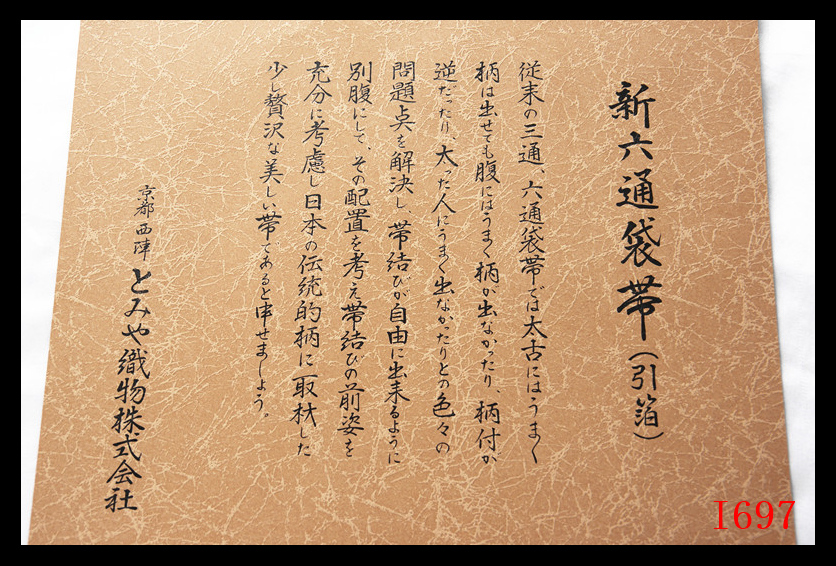 新六通袋帯(引箔)
従来の三通、六通袋帯では太古にはうまく
柄は出せても腹にはうまく柄が出なかったり、柄付が
逆だったり、太った人にうまく出なかったりとの色々の
問題点を解決し、帯結びが自由に出来るように
別腹にして、その配置を考え帯結びの前姿を
充分に考慮し日本の伝統的柄に取材した
少し贅沢な美しい帯であると申せましょう。
京都西陣 とみや織物株式会社
I697